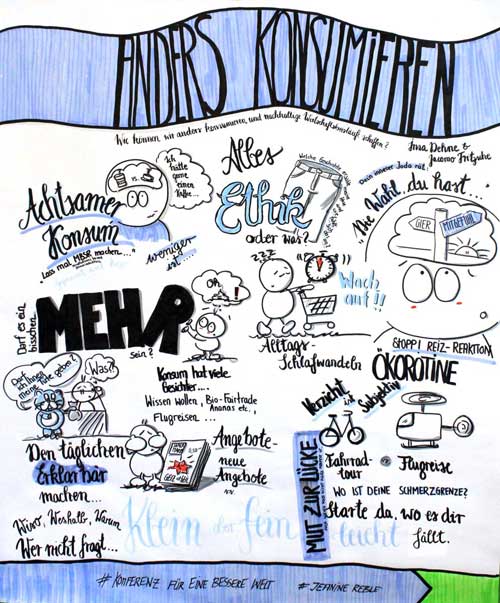 ANDERS KONSUMIEREN
Wie können wir anders konsumieren, und nachhaltige Wirtschaftskreisläufe schaffen?
Irna Dehne &
Ich
hätte
gerne
einen
Kaffee...
VS.
Achtsamer
Konsum
Lass mal MBSR machen...."
weniger
ist....
Alles
Ethik
oder was?
Welche Geschichte
Dein innerer Joda rät:
"Die Wahl, du hast...
GIER
MITGEFÜHL
STOPP! REIZ-REAKTION
Darf es ein
bisschen
MEHR
sein?
Oh...
!
ZZZ
Wach
auf!!
Alltags-
Schlafwandeln
ÖKOROTINE
Darf
ich Ihnen
meine Tüte geben?
Was?!
Konsum hat viele
Gesichter....
Wissen wollen, Bio-Fairtrade
Ananas etc.,
Flugreisen ...
Den täglichen
Erklärbär
machen...
Wieso, Weshalb, Warum
Wer nicht fragt...
Angebote-
neue
Angebote
Verzicht ist subjektiv
MUT ZUR LÜCKE
Fahrrad-
tour
Flugreise
WO IST DEINE SCHMERZGRENZE?
Starte da, wo es dir
leicht fällt.
Klein aber fein
# KONFERENZ FÜR EINE BESSERE WELT
# JEANINE REBLE